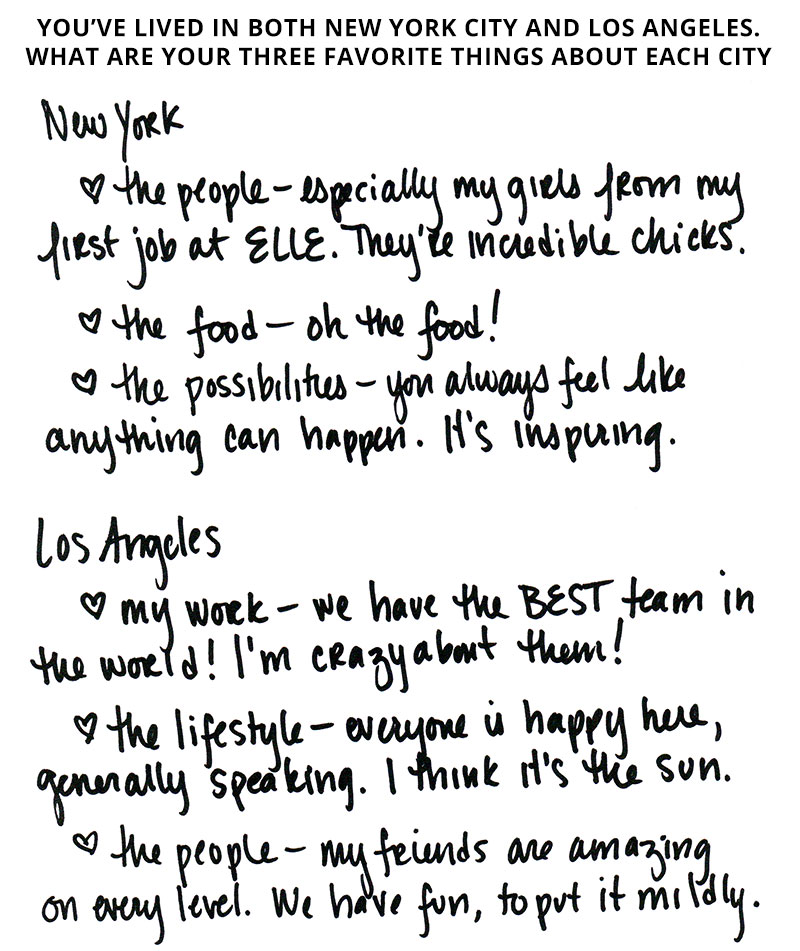 YOU'VE LIVED IN BOTH NEW YORK CITY AND LOS ANGELES.
WHAT ARE YOUR THREE FAVORITE THINGS ABOUT EACH CITY
New York
♡ the people – especially my girls from my
first job at ELLE. They're incredible chicks.
♡ the food – oh the food!
♡ the possibilities – you always feel like
anything can happen. It's inspiring.
Los Angeles
♡ my work – we have the BEST team in
the world! I'm crazy about them!
♡ the lifestyle – everyone is happy here,
generally speaking. I think it's the sun.
♡ the people – my friends are amazing
on every level. We have fun, to put it mildly.